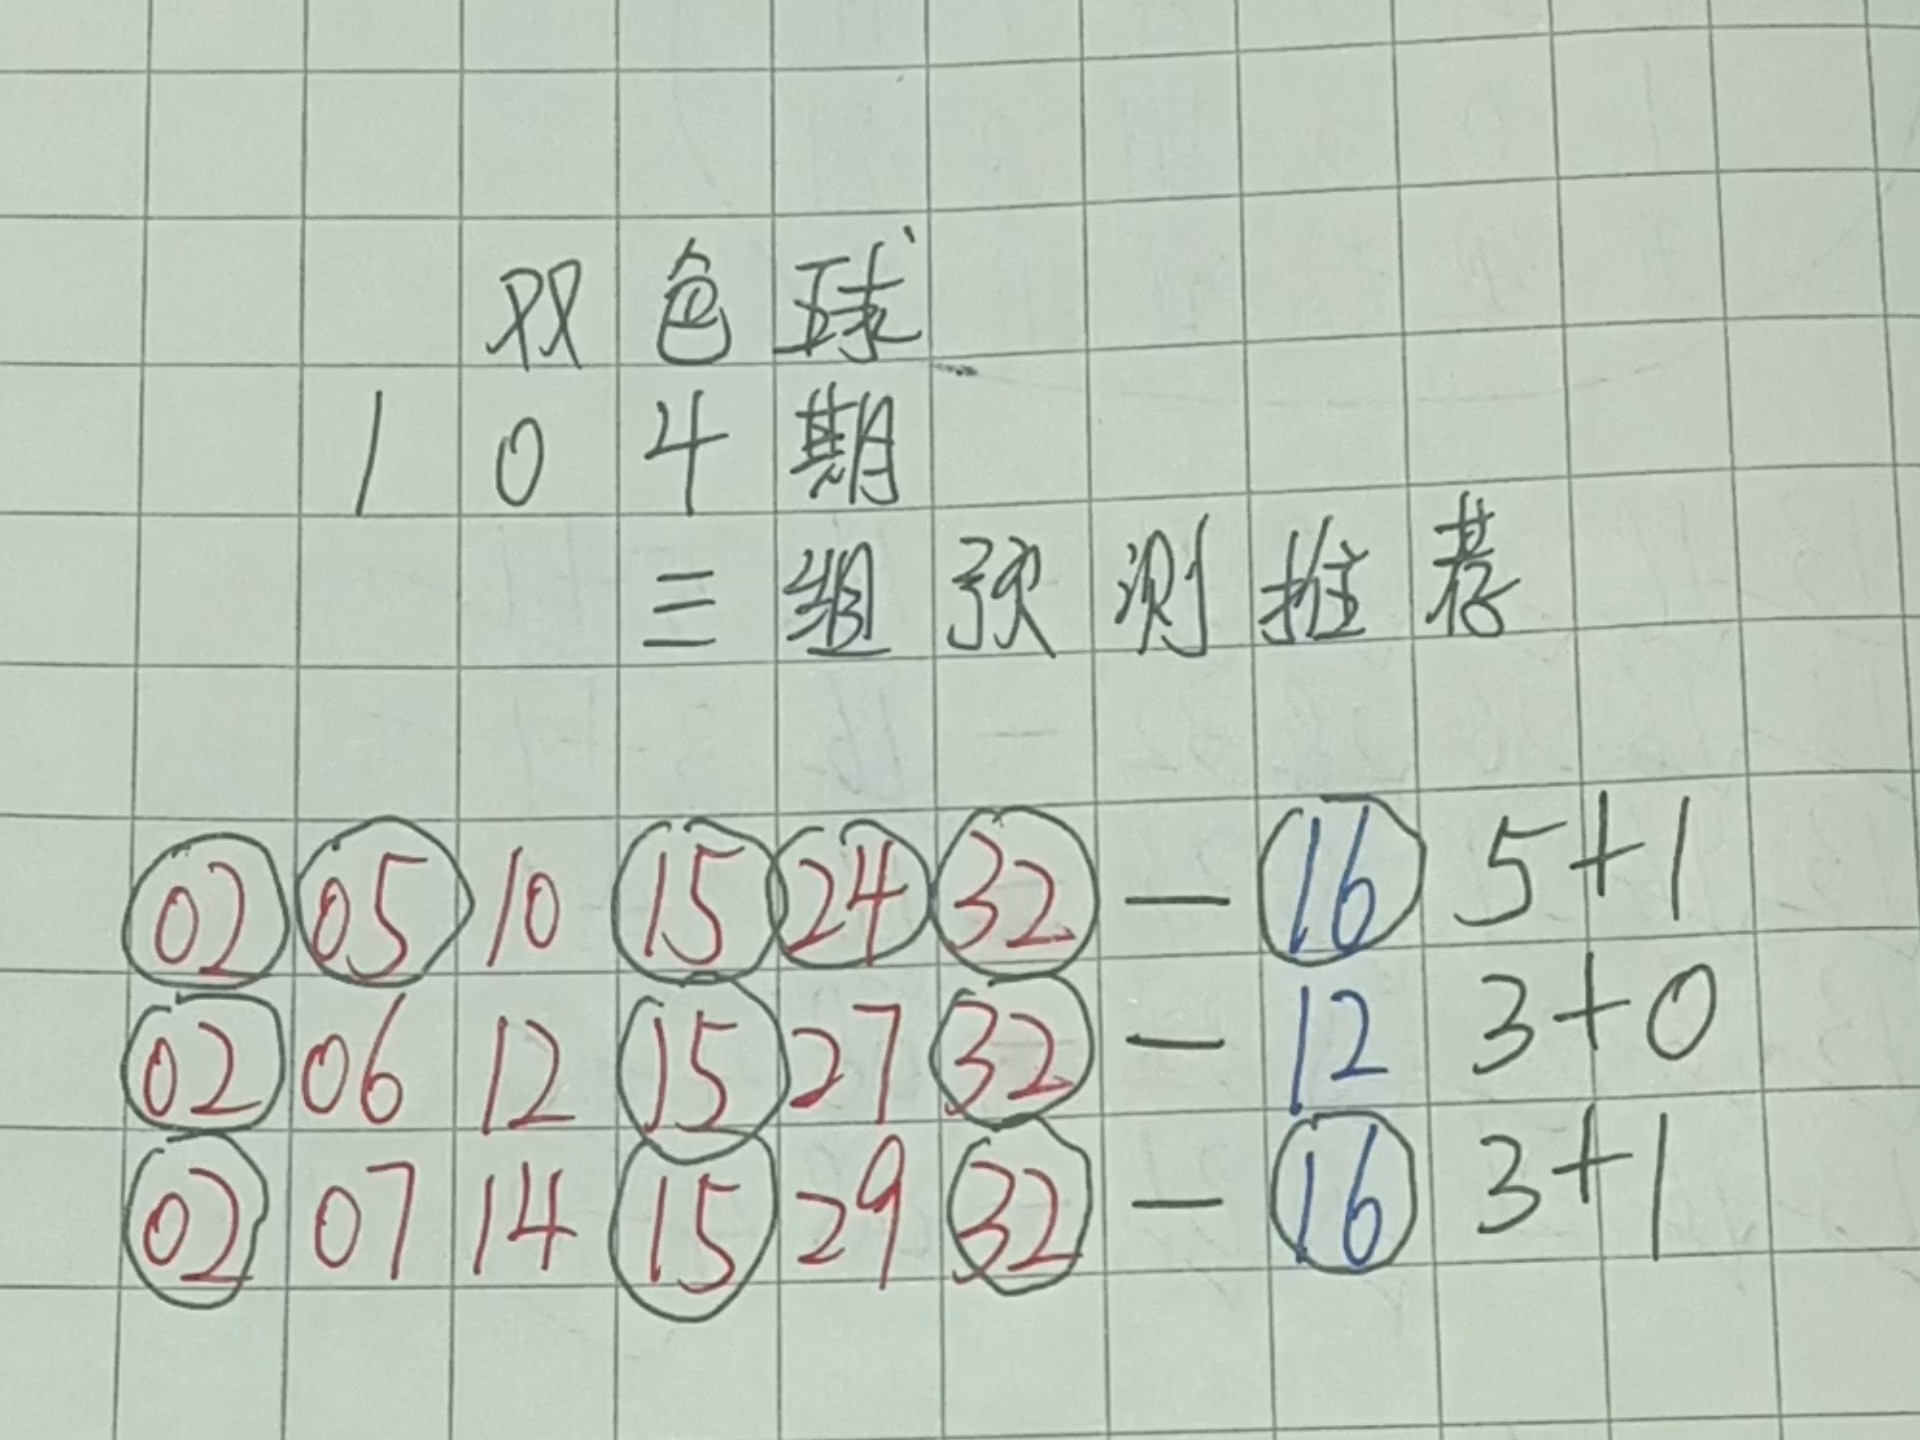 双色球
104期
三组预测推荐
02 05 10 15 24 32 — 16 5+1
02 06 12 15 27 32 — 12 3+0
02 07 14 15 29 32 — 16 3+1